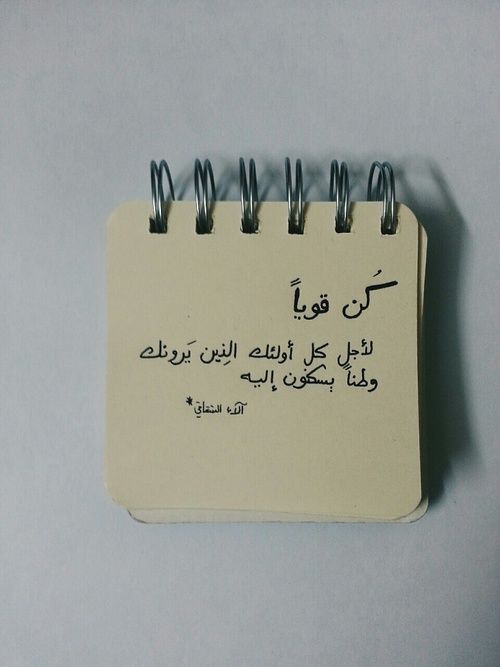 كُن قوياً
لأجل كل أولئك الذِين يَرونك
وطناً يسكنون إليه
آلاء *